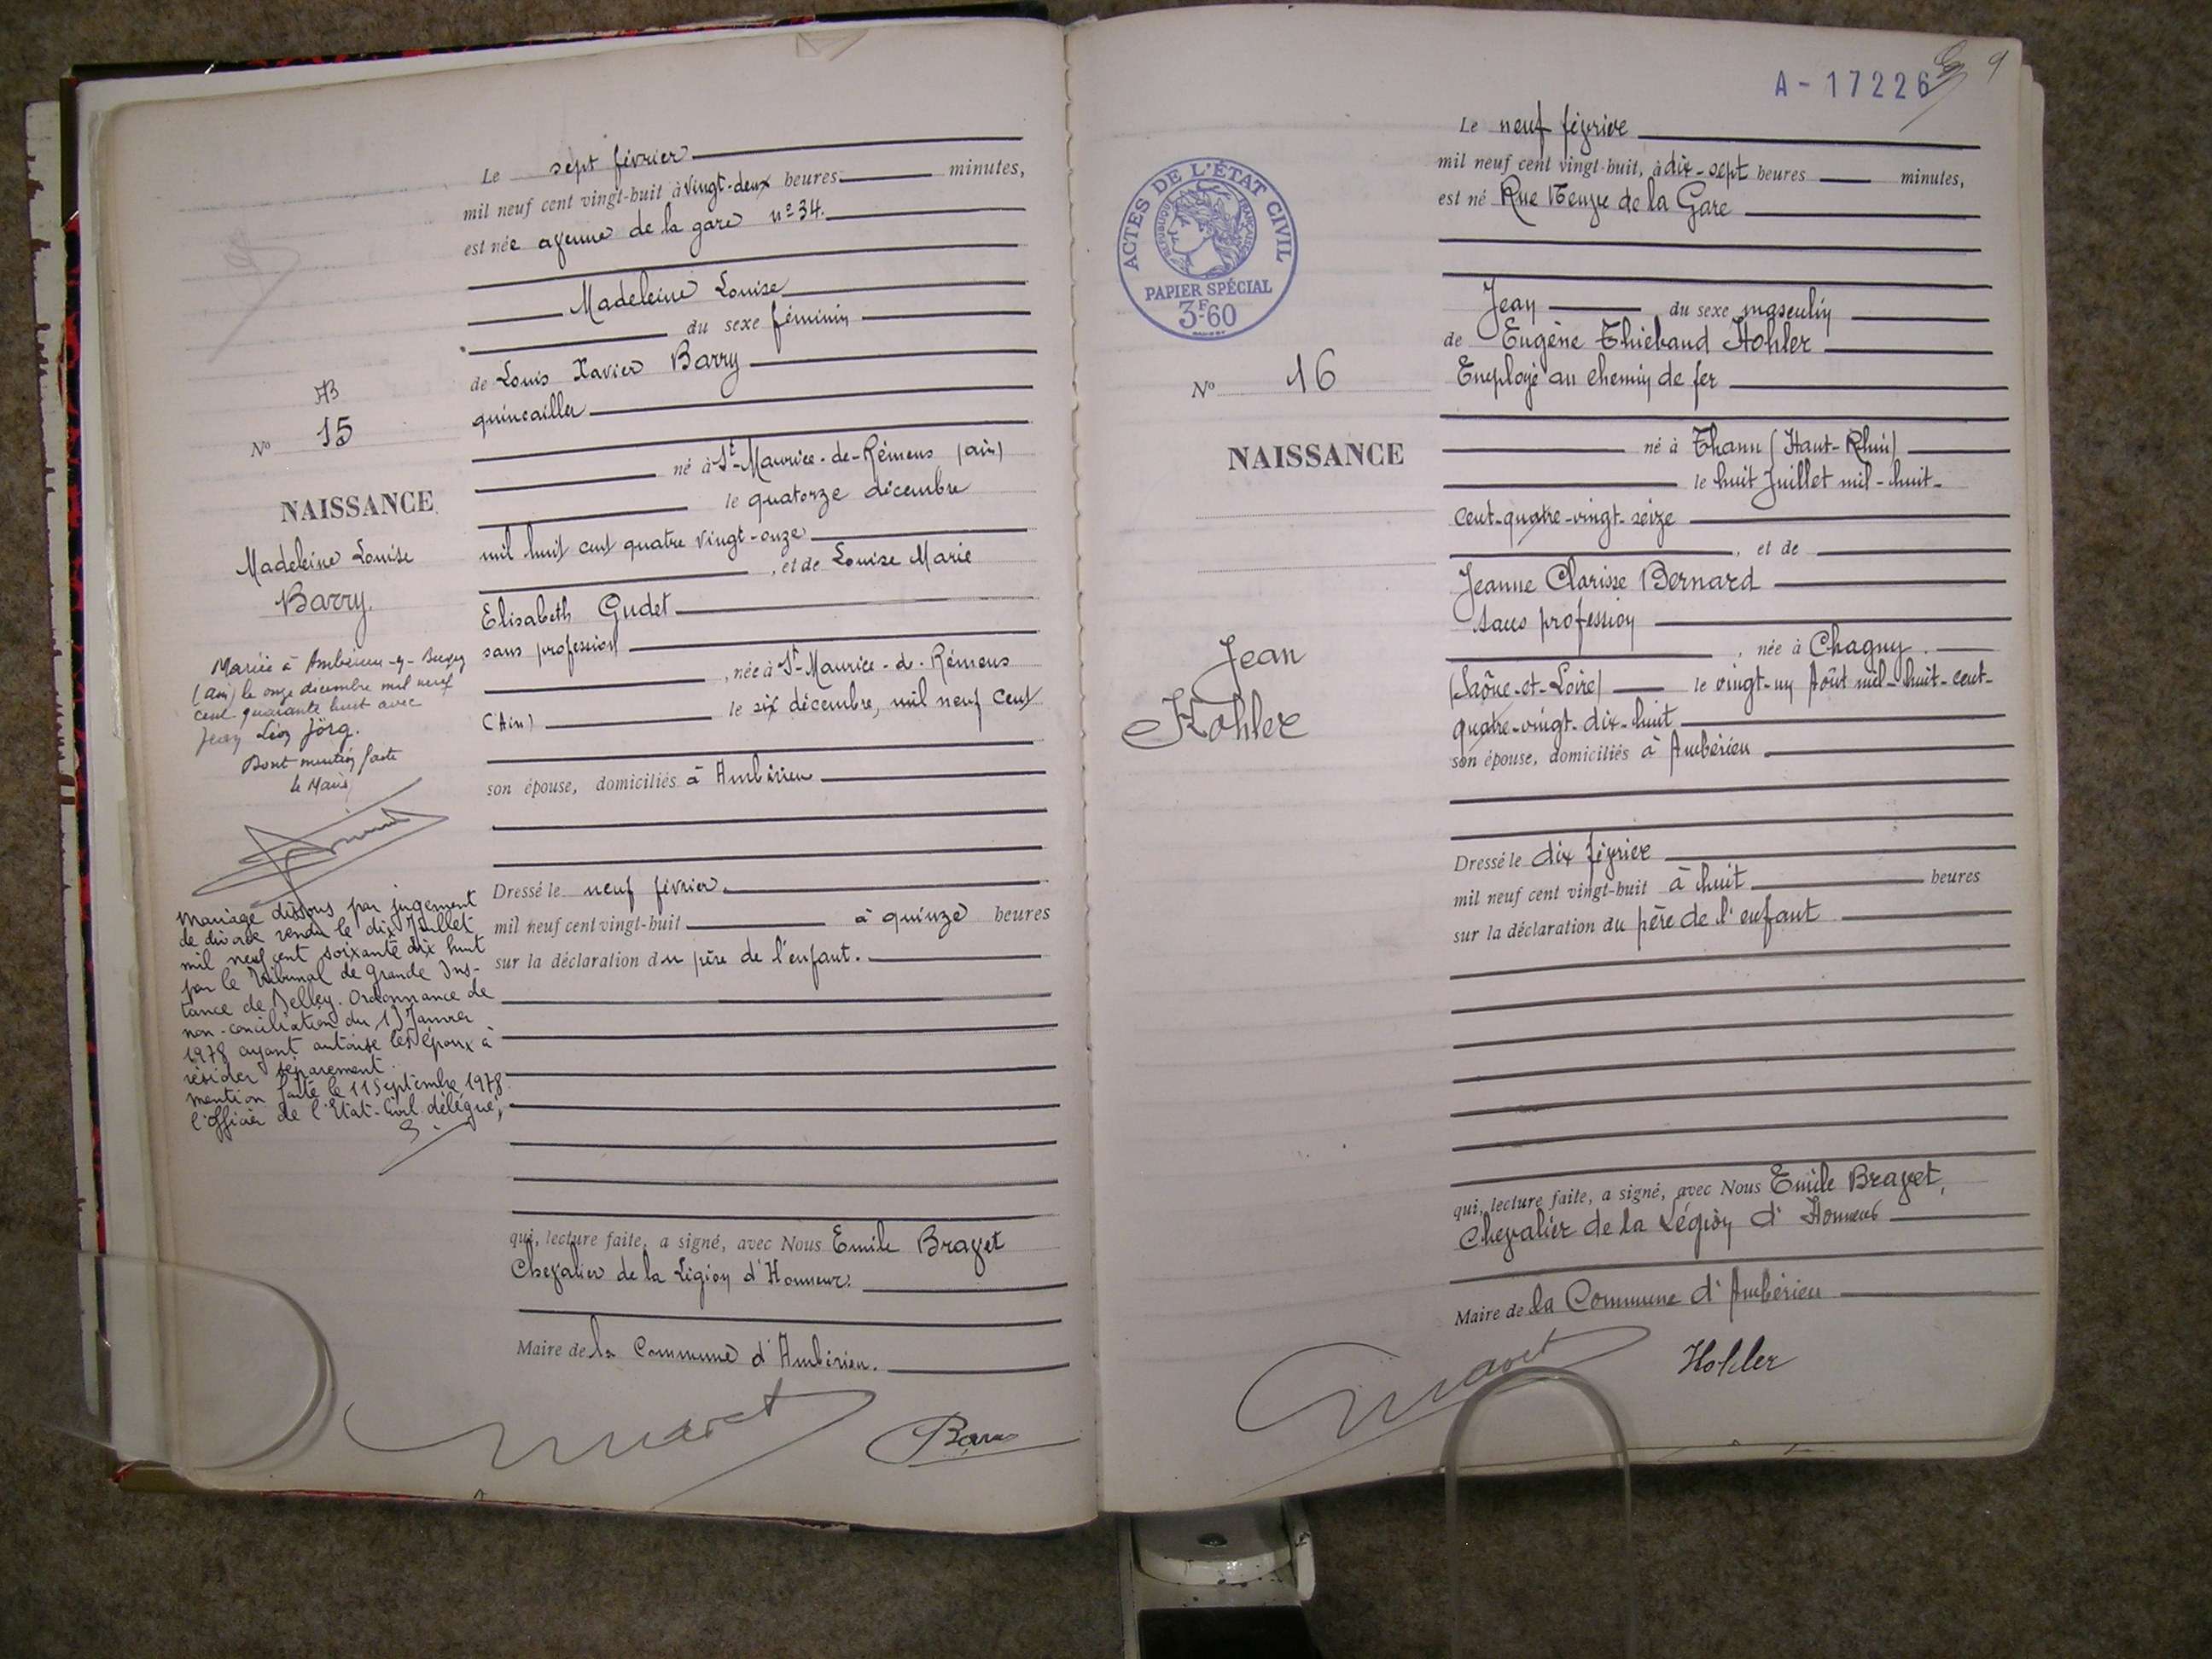 Le sept février
mil neuf cent vingt-huit à vingt-deux heures minutes,
est née avenue de la gare n° 34.
Madeleine Louise
du sexe féminin
de Louis Xavier Barry
quincailler
né à St-Maurice-de-Rémens (ain)
le quatorze décembre
mil huit cent quatre vingt-onze
, et de Louise Marie
Elisabeth Gudet
sans profession
, née à St-Maurice-d-Rémens
(Ain) le six décembre, mil neuf cent
son épouse, domiciliés à Ambérieu
Dressé le neuf février.
mil neuf cent vingt-huit à quinze heures
sur la déclaration du père de l'enfant.
qui, lecture faite, a signé, avec Nous Emile Bravet
Chevalier de la Légion d'Honneur.
Maire de la Commune d'Ambérieu.
AB
No 15
NAISSANCE
Madeleine Louise
Barry.
Mariée à Ambérieu-en-Bugey
(ain) le onze décembre mil neuf
cent quarante huit avec
Jean Léon Jörg.
Dont mention faite
le Maire
Mariage dissous par jugement
de divorce rendu le dix Juillet
mil neuf cent soixante dix huit
par le Tribunal de Grande Ins-
tance de Belley. Ordonnance de
non-conciliation du 13 Janvier
1978 ayant autorisé les époux à
résider séparement.
mention faite le 11 Septembre 1978
l'officier de l'Etat-Civil délégué,
A-17226
9
ACTES DE L'ÉTAT CIVIL
RÉPUBLIQUE FRANÇAISE
PAPIER SPÉCIAL
3F60
No 16
NAISSANCE
Jean
Kohler
Le neuf février
mil neuf cent vingt-huit, à dix-sept heures minutes,
est né Rue Neuve de la Gare
Jean du sexe masculin
de Eugène Thiébaud Hohler
Employé au chemin de fer
né à Thann (Haut-Rhin)
le huit Juillet mil-huit-
cent-quatre-vingt-seize
, et de
Jeanne Clarisse Bernard
sans profession
, née à Chagny.
(Saône-et-Loire) le vingt-un Août mil-huit-cent-
quatre-vingt-dix-huit
son épouse, domiciliés à Ambérieu
Dressé le dix février
mil neuf cent vingt-huit à huit heures
sur la déclaration du père de l'enfant
qui, lecture faite, a signé, avec Nous Emile Bravet,
Chevalier de la Légion d'Honneur
Maire de la Commune d'Ambérieu
Hohler